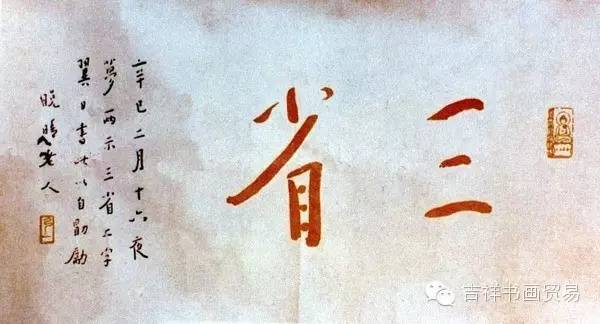 三省
辛巳二月十六夜
夢两示三省二字
翼日書此以自勖勵
晚晴老人
吉祥书画贸易